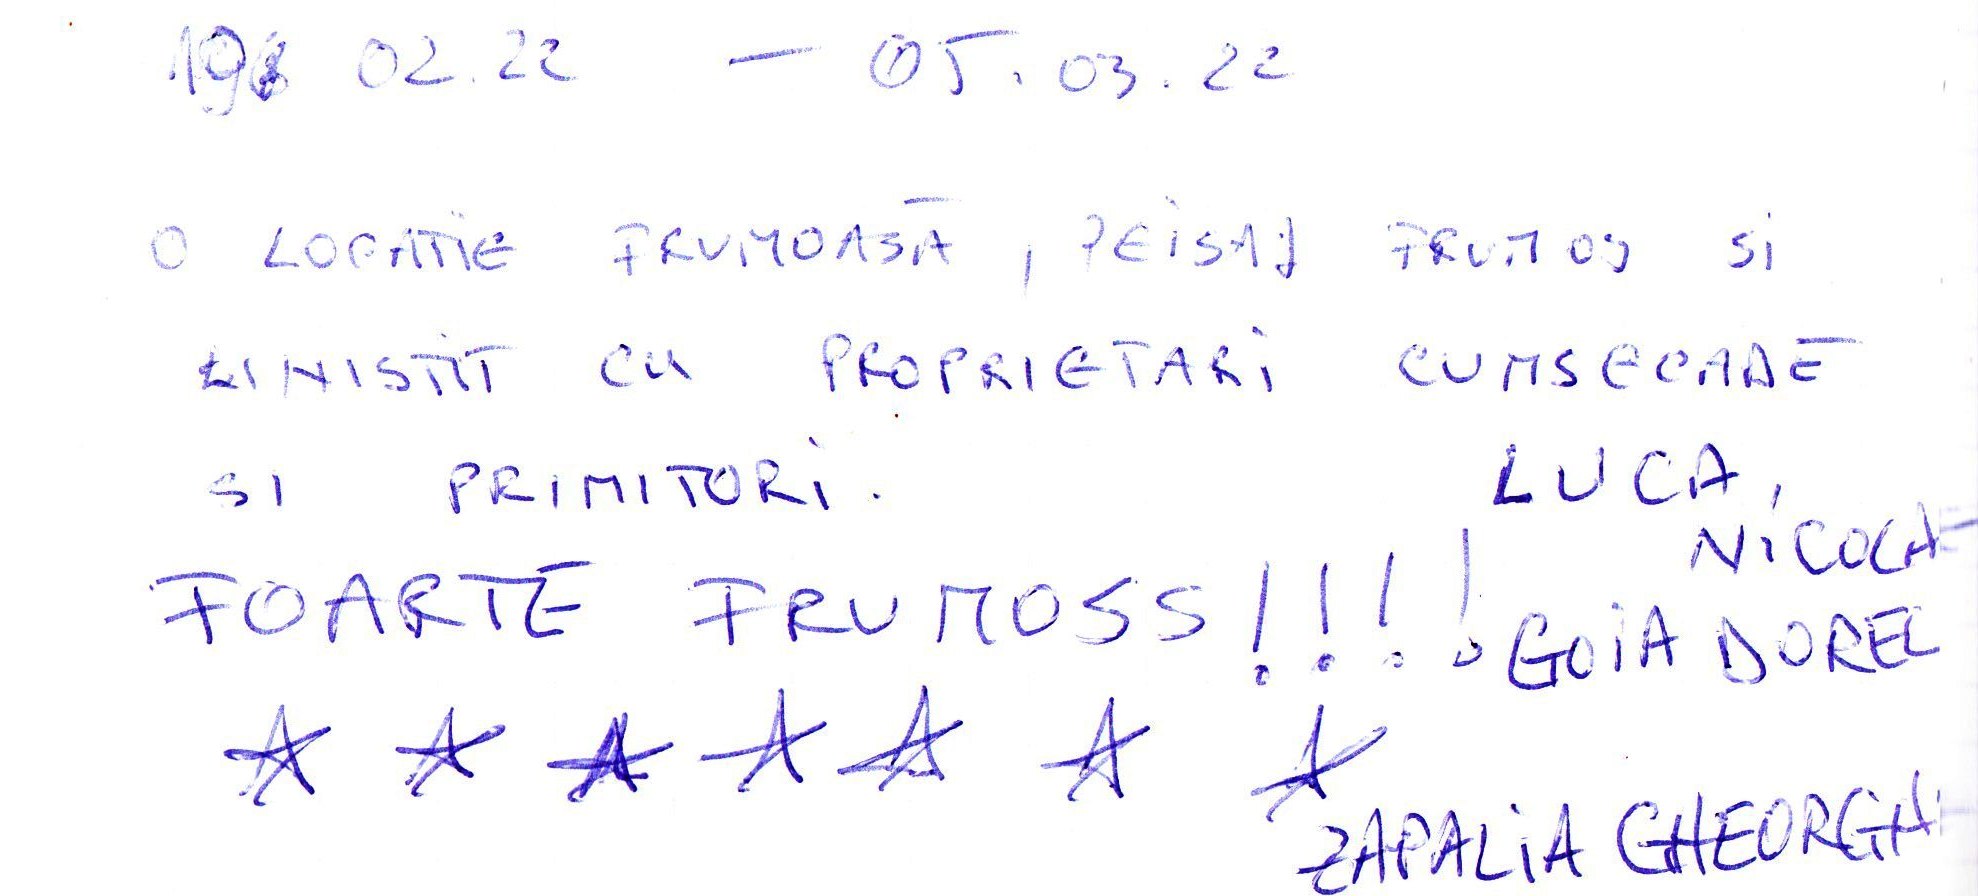 02.22 — 05.03.22
O LOCATIE FRUMOASĂ, PEISAJ FRUMOS SI
LINISTIT CU PROPRIETARI CUMSECADE
SI PRIMITORI.
LUCA,
FOARTE FRUMOSS!!!!
GOIA DOREL
★ ★ ★ ★ ★ ★ ★
ZAPALIA